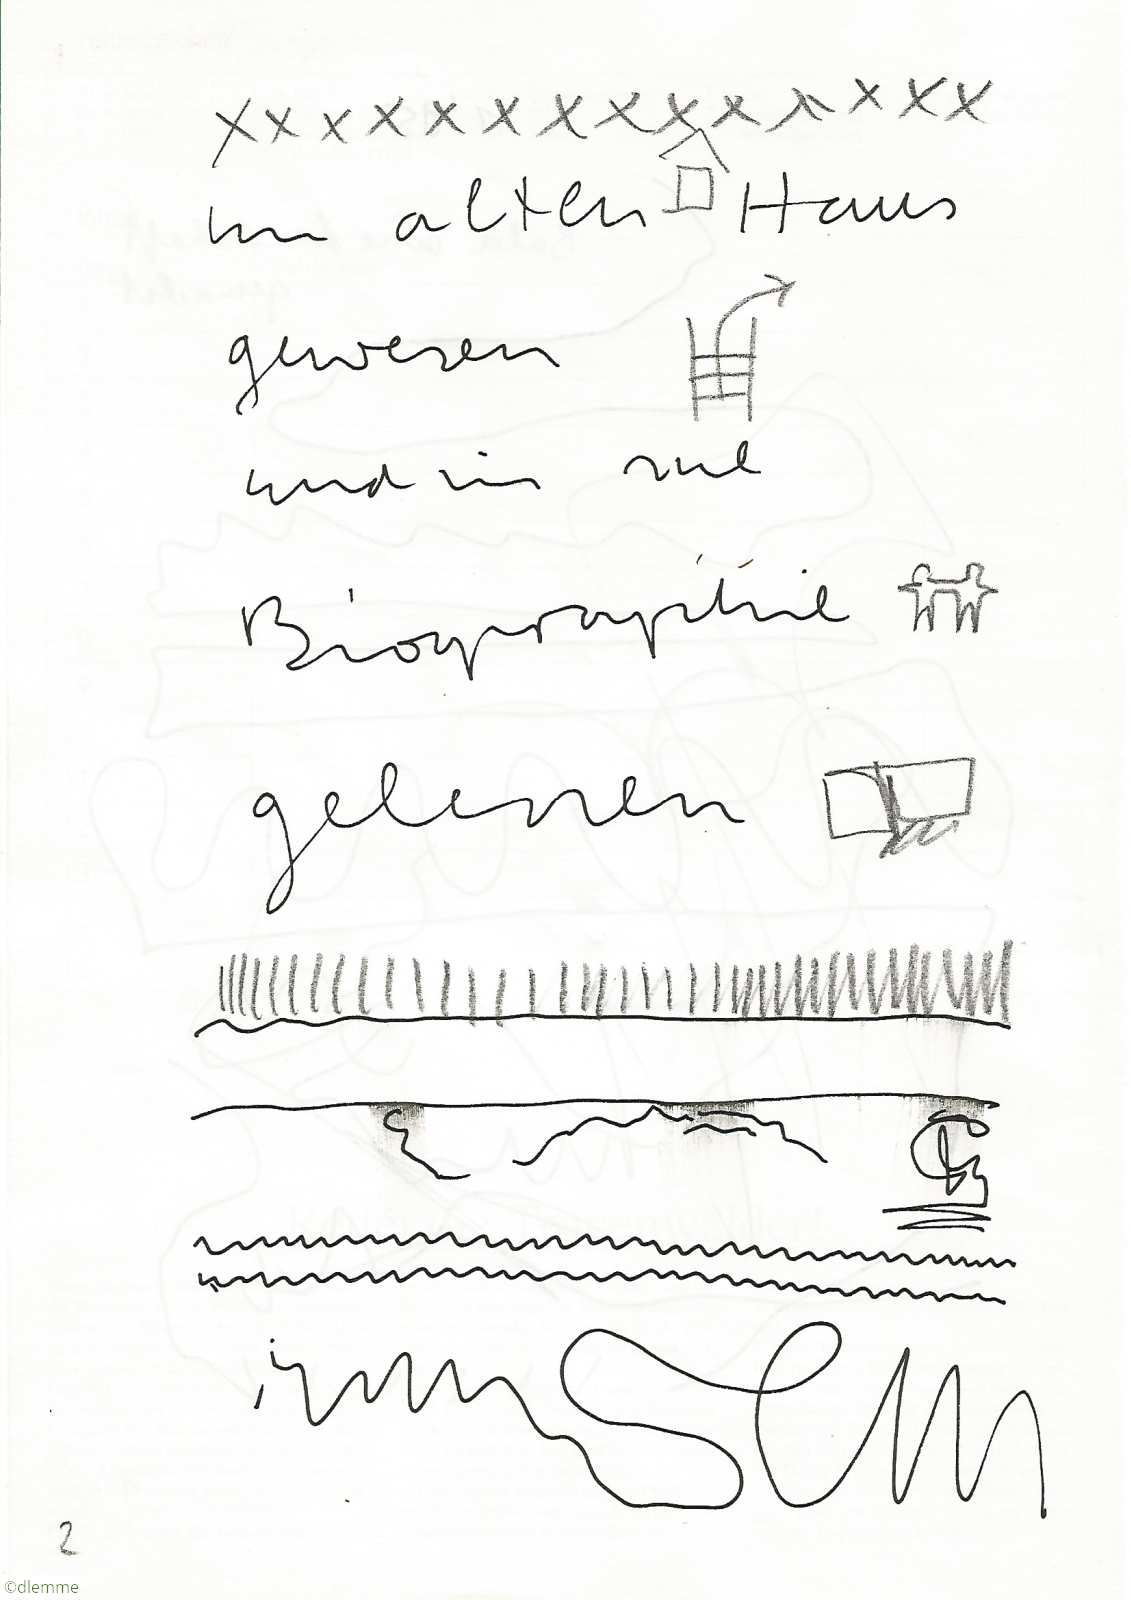 xxxxxxxxxxxxxx
im alten Haus
gewesen
und in
Biographie
gelesen
2
©dlemme